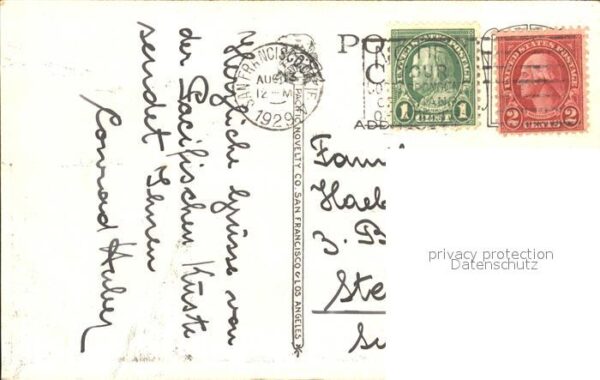 Herzliche Grüsse von
der Pacifischen Küste
sendet Ihnen
Conrad Huber
SAN FRANCISCO, CALIF.
AUG
12 - M
1929
PACIFIC NOVELTY CO. SAN FRANCISCO & LOS ANGELES
PO
C
ADD
UNITED STATES POSTAGE
1 CENT 1
UNITED STATES POSTAGE
2 CENTS 2
Fam
z. B
Ste
privacy protection
Datenschutz